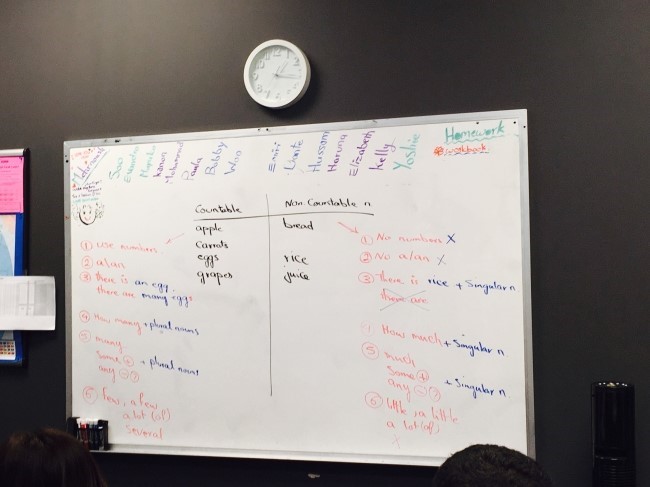 Homework
workbook
Soo
Mohammed
Paola
Bobby
Woo
Hussam
Haruna
Elizabeth
Kelly
Yoshie
Countable
Non-Countable n
apple
bread
Carrots
eggs
rice
grapes
juice
① Use numbers
② a/an
③ there is an egg
there are many eggs
④ How many + plural nouns
⑤ many
some +
any - ?
+ plural nouns
⑥ few, a few
a lot (of)
several
① No numbers X
② No a/an X
③ There is rice + Singular n
there are
How much + Singular n
⑤ much
Some +
any - ?
+ Singular n
⑥ little, a little
a lot (of)